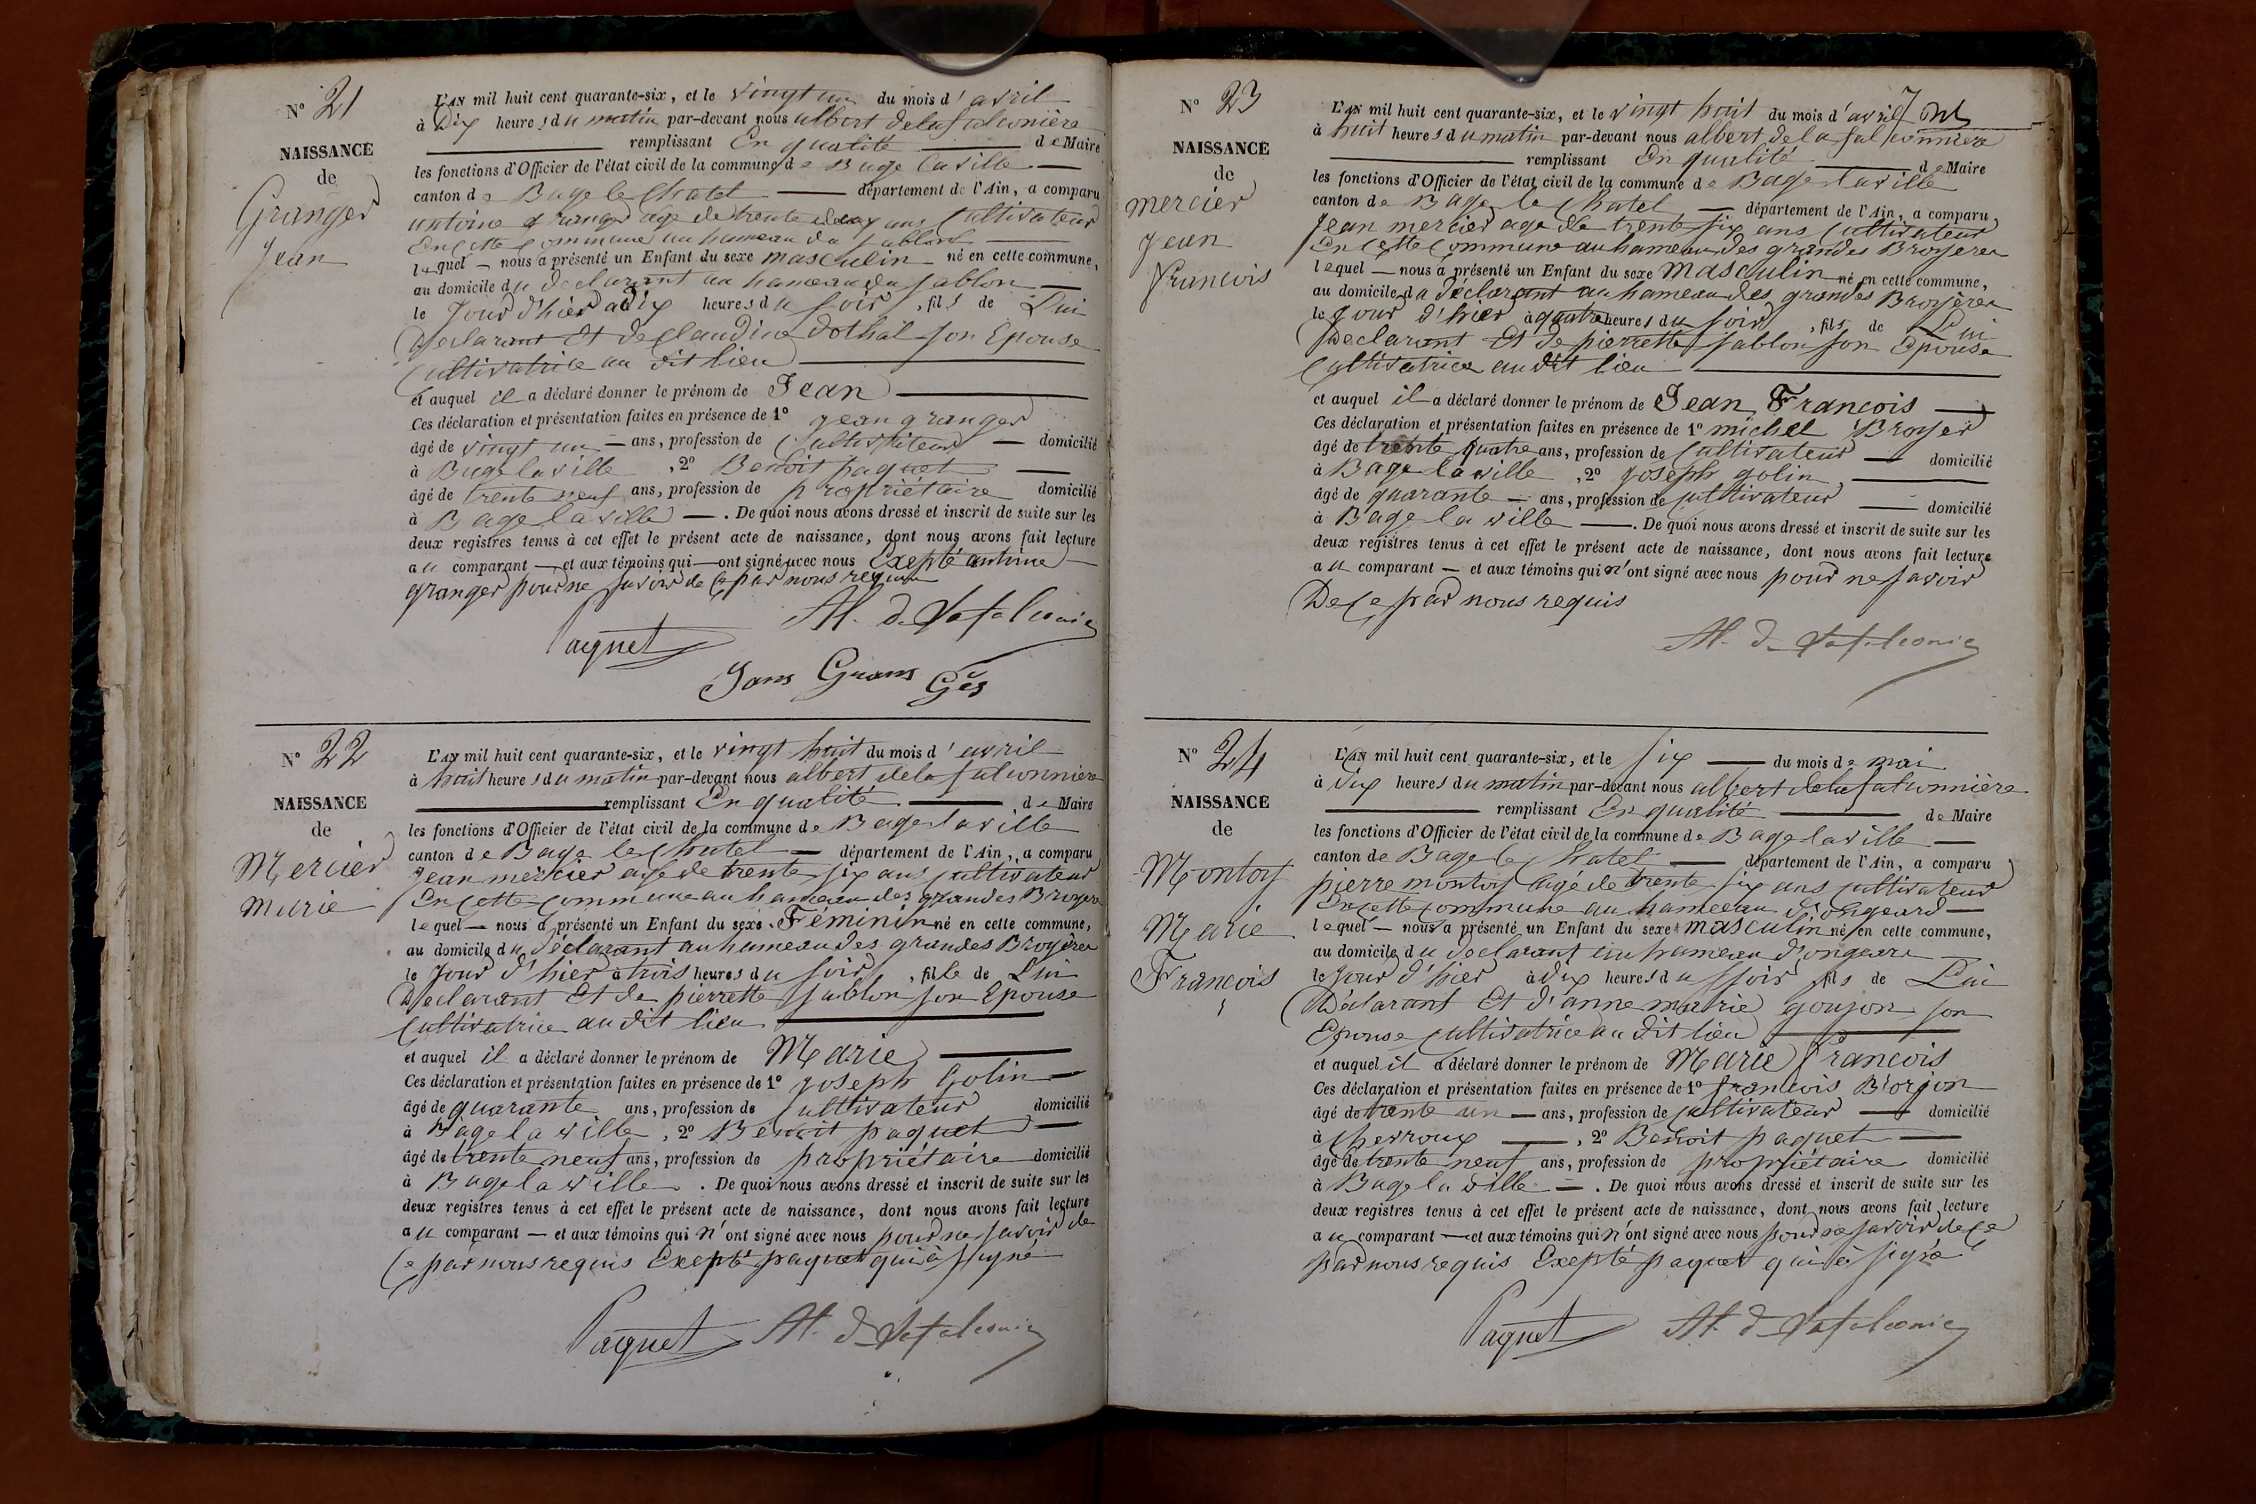 N° 21
NAISSANCE
de
Granger
Jean
L'AN mil huit cent quarante-six, et le vingt un du mois d' avril
à Dix heures du matin par-devant nous albert delafalconnière
remplissant En qualité de Maire
les fonctions d'Officier de l'état civil de la commune de Bage laville
canton de Bage le Chatel département de l'Ain, a comparu
antoine granger age de trente deux ans Cultivateur
En cette Commune au hameau du sablon
lequel nous a présenté un Enfant du sexe masculin né en cette commune,
au domicile du declarant au hameau du sablon
le Jour d'hier à dix heures du soir, fils de Lui
Declarant Et de Claudine dothal son Epouse
Cultivatrice au dit lieu
et auquel il a déclaré donner le prénom de Jean
Ces déclaration et présentation faites en présence de 1° jean granger
âgé de vingt un ans, profession de Cultivateur domicilié
à Bage laville, 2° Benoit paquet
âgé de trente neuf ans, profession de propriétaire domicilié
à Bage la ville. De quoi nous avons dressé et inscrit de suite sur les
deux registres tenus à cet effet le présent acte de naissance, dont nous avons fait lecture
au comparant et aux témoins qui ont signé avec nous Exepté antoine
granger pour ne savoir de ce par nous requis
Al. de Lafalconnie
Paquet
N° 22
NAISSANCE
de
Mercier
Marie
L'AN mil huit cent quarante-six, et le vingt huit du mois d' avril
à huit heures du matin par-devant nous albert dela falconnière
remplissant En qualité de Maire
les fonctions d'Officier de l'état civil de la commune de Bage laville
canton de Bage le Chatel département de l'Ain, a comparu
Jean mercier age de trente six ans Cultivateur
En cette commune au hameau des grandes Broyere
lequel nous a présenté un Enfant du sexe Féminin né en cette commune,
au domicile du déclarant au hameau des grandes Broyères
le Jour d'hier à trois heures du soir, fille de Lui
Declarant Et de pierrette sablon son Epouse
Cultivatrice au dit lieu
et auquel il a déclaré donner le prénom de Marie
Ces déclaration et présentation faites en présence de 1° joseph Golin
âgé de quarante ans, profession de Cultivateur domicilié
à Bage la ville, 2° Benoit paquet
âgé de trente neuf ans, profession de propriétaire domicilié
à Bage la ville. De quoi nous avons dressé et inscrit de suite sur les
deux registres tenus à cet effet le présent acte de naissance, dont nous avons fait lecture
au comparant et aux témoins qui n'ont signé avec nous pour ne savoir de
Ce par nous requis Exepté paquet qui à signé
Paquet Al. de Lafalconnie
N° 23
NAISSANCE
de
mercier
Jean
francois
L'AN mil huit cent quarante-six, et le vingt huit du mois d'avril
à huit heures du matin par-devant nous albert de la falconniere
remplissant En qualité de Maire
les fonctions d'Officier de l'état civil de la commune de Bage laville
canton de Bage le Chatel département de l'Ain, a comparu
Jean mercier age de trente six ans Cultivateur
En cette Commune au hameau des grandes Broyeres
lequel nous a présenté un Enfant du sexe Masculin né en cette commune,
au domicile du déclarant au hameau des grandes Broyères
le Jour d'hier à quatre heures du soir, fils de Lui
Declarant Et de pierrette sablon son Epouse
Cultivatrice au dit lieu
et auquel il a déclaré donner le prénom de Jean François
Ces déclaration et présentation faites en présence de 1° michel Broyer
âgé de trente quatre ans, profession de Cultivateur domicilié
à Bage la ville, 2° Joseph golin
âgé de quarante ans, profession de Cultivateur domicilié
à Bage la ville. De quoi nous avons dressé et inscrit de suite sur les
deux registres tenus à cet effet le présent acte de naissance, dont nous avons fait lecture
au comparant et aux témoins qui n'ont signé avec nous pour ne savoir
De Ce par nous requis
Al. de Lafalconnie
N° 24
NAISSANCE
de
Montoy
Marie
Francois
L'AN mil huit cent quarante-six, et le six du mois de mai
à dix heures du matin par-devant nous albert delafalconnière
remplissant En qualité de Maire
les fonctions d'Officier de l'état civil de la commune de Bage laville
canton de Bage le Chatel département de l'Ain, a comparu
pierre montoy agé de trente six ans cultivateur
En cette commune au hameau d'ongeard
lequel nous a présenté un Enfant du sexe masculin né en cette commune,
au domicile du declarant au hameau d'ongeard
le Jour d'hier à dix heures du soir fils de Lui
Déclarant Et d'anne marie goujon son
Epouse Cultivatrice au dit lieu
et auquel il a déclaré donner le prénom de Marie francois
Ces déclaration et présentation faites en présence de 1° francois Brorjon
âgé de trente un ans, profession de Cultivateur domicilié
à Cherroux, 2° Benoit paquet
âgé de trente neuf ans, profession de propriétaire domicilié
à Bage la ville. De quoi nous avons dressé et inscrit de suite sur les
deux registres tenus à cet effet le présent acte de naissance, dont nous avons fait lecture
au comparant et aux témoins qui n'ont signé avec nous pour ne savoir de ce
par nous requis Exepté paquet qui à signé
Paquet Al. de Lafalconnie